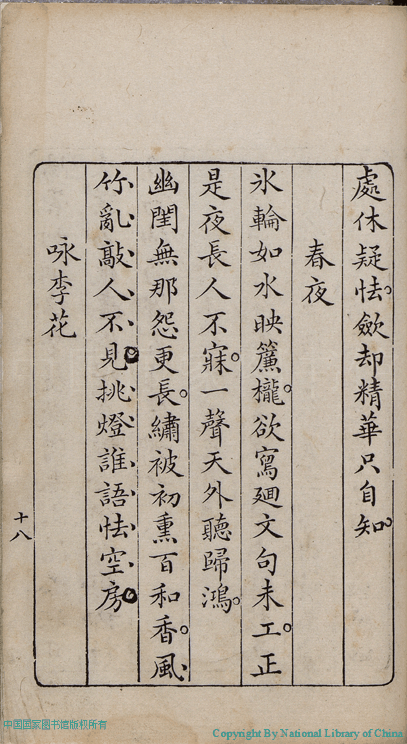 處休疑怯。斂却精華只自知。
春夜
氷輪如水映簾櫳。欲寫廻文句未工。正
是夜長人不寐。一聲天外聽歸鴻。
幽閨無那怨更長。繡被初熏百和香。風
竹亂敲人不見。挑燈誰語怯空房。
咏李花
十八
中国国家图书馆版权所有
Copyright By National Library of China